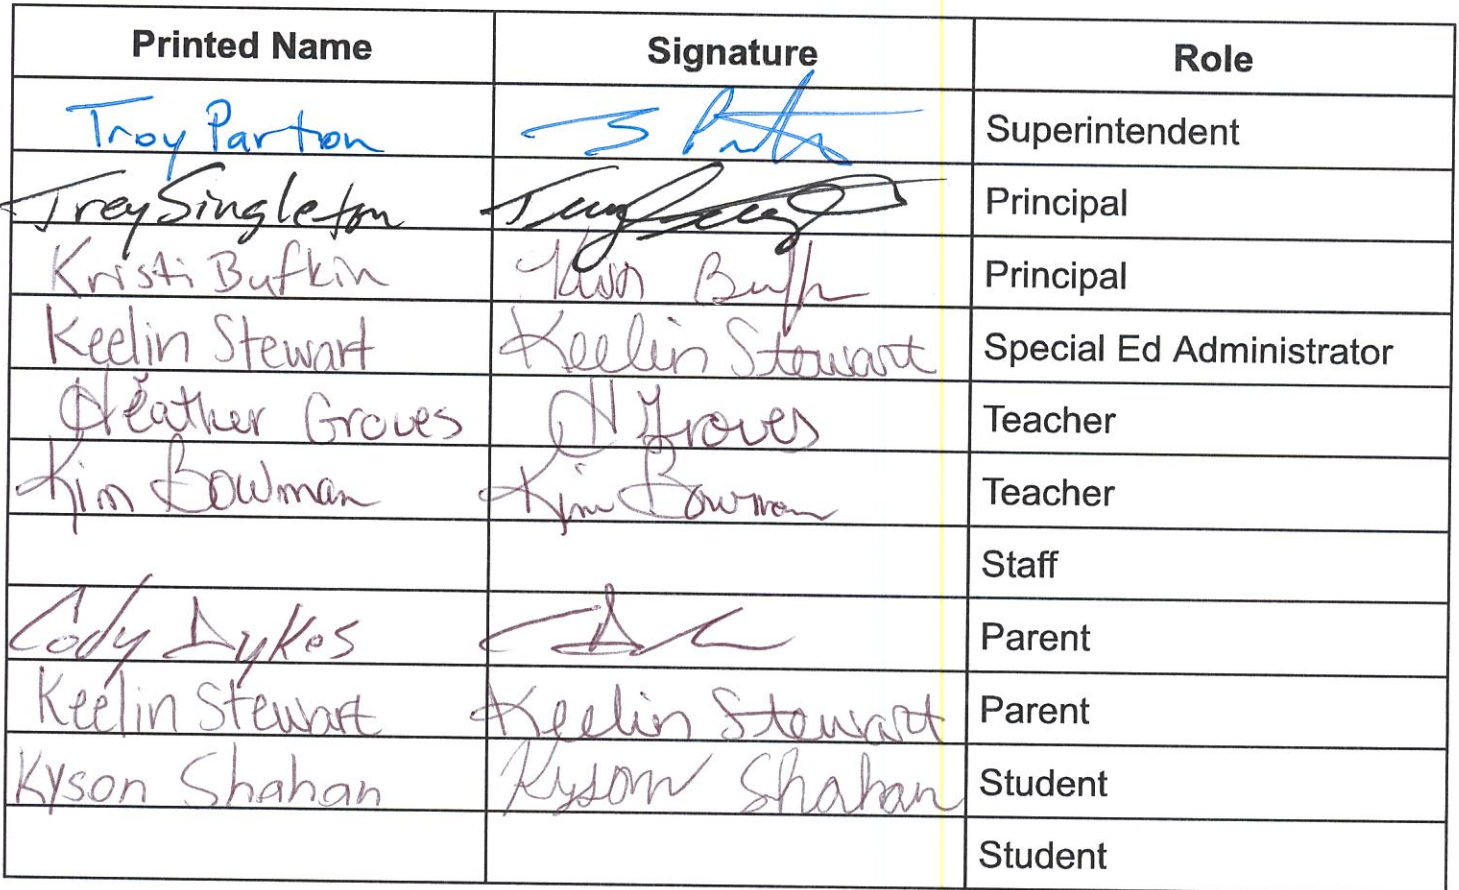 Printed Name Signature Role
Troy Parton Superintendent
Trey Singleton Principal
Kristi Bufkin Principal
Keelin Stewart Keelin Stewart Special Ed Administrator
Heather Groves H Groves Teacher
Kim Bowman Kim Bowman Teacher
Staff
Cody Dykes Parent
Keelin Stewart Keelin Stewart Parent
Kyson Shahan Kyson Shahan Student
Student